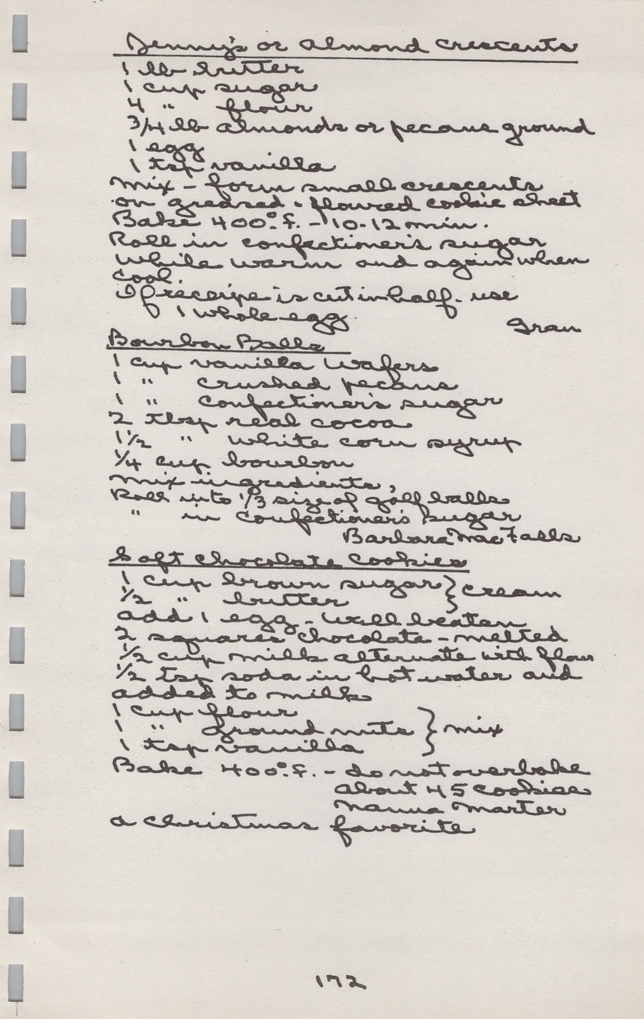 Jenny's or Almond Crescents
1 lb butter
1 cup sugar
4 " flour
3/4 lb almonds or pecans ground
1 egg
1 tsp vanilla
Mix - form small crescents
on greased - floured cookie sheet
Bake 400° f. - 10-12 min.
Roll in confectioner's sugar
while warm and again when
cool.
If receipe is cut in half - use
1 whole egg.
Gran
Bourbon Balls
1 cup vanilla wafers
1 " crushed pecans
1 " confectioner's sugar
2 tbsp real cocoa
1 1/2 " white corn syrup
1/4 cup bourbon
Mix ingredients,
Roll into 1/3 size of golf balls
" in confectioner's sugar
Barbara MacFalls
Soft Chocolate Cookies
1 cup brown sugar } cream
1/2 " butter
add 1 egg - well beaten
2 squares chocolate - melted
1/2 cup milk alternate with flour
1/2 tsp soda in hot water and
added to milk
1 cup flour
1 " ground nuts } mix
1 tsp vanilla
Bake 400° f. - do not overbake
about 45 cookies
Nanna Marter
a Christmas favorite
172